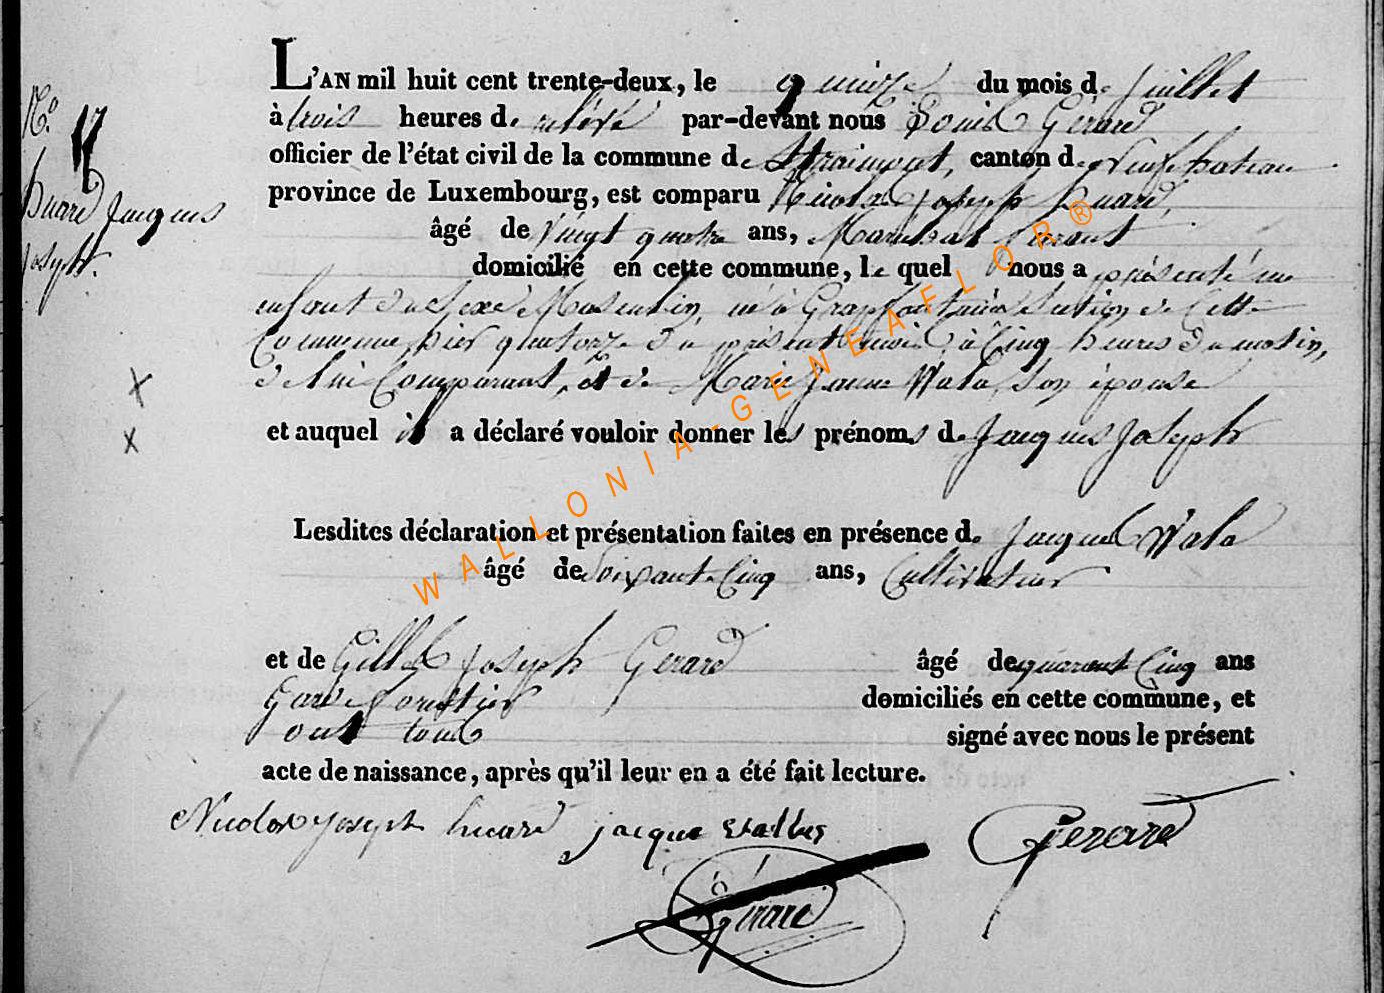 N.° 17
Huard Jacques
Joseph.
L'AN mil huit cent trente-deux, le quinze du mois de Juillet
à trois heures de relevé par-devant nous Louis Gérard
officier de l'état civil de la commune de Straimont, canton de Neufchateau
province de Luxembourg, est comparu Nicolas Joseph Huard,
âgé de Vingt quatre ans, Marechal ferant
domicilié en cette commune, le quel nous a présenté un
enfant du Sexe Masculin, né à Grapfontaine Section de Cette
Commune, hier quatorze du présent mois, à Cinq heures du matin,
de lui Comparant, et de Marie Jeanne Wala, Son épouse
et auquel il a déclaré vouloir donner les prénoms de Jacques Joseph
Lesdites déclaration et présentation faites en présence de Jacques Wala
âgé de Soixante Cinq ans, Cultivateur
et de Gilles Joseph Gerard âgé de quarante Cinq ans
Garde forestier domiciliés en cette commune, et
ont tous signé avec nous le présent
acte de naissance, après qu'il leur en a été fait lecture.
Nicolas joseph huard jacque Wallas Gerard
Gérard
WALLONIA-GENEAFLOR®